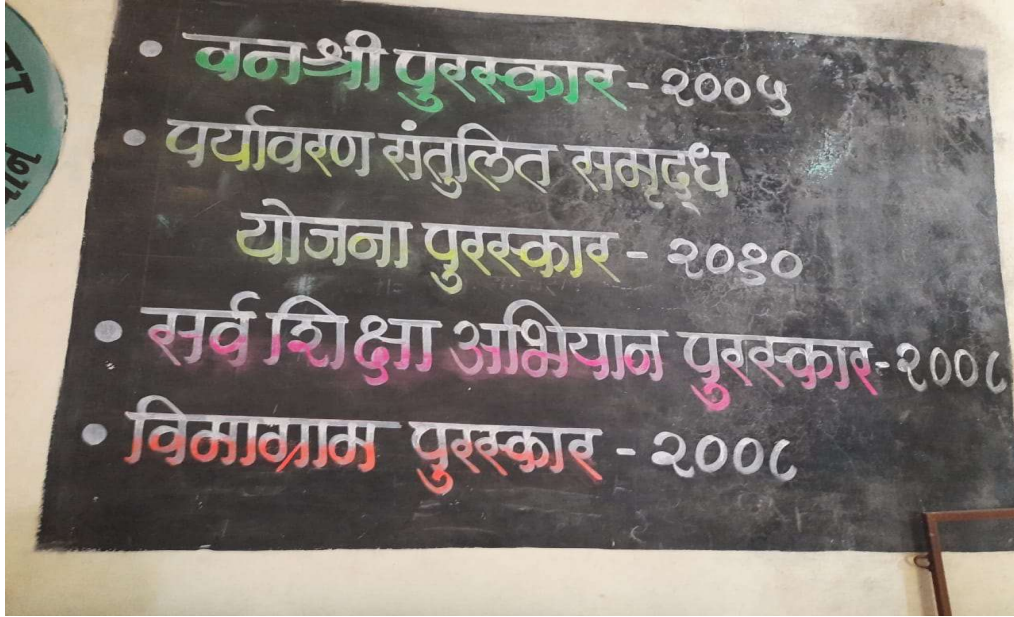 • वनश्री पुरस्कार - २००५
• पर्यावरण संतुलित समृद्ध
योजना पुरस्कार - २०१०
• सर्व शिक्षा अभियान पुरस्कार - २००८
• विमाग्राम पुरस्कार - २००८